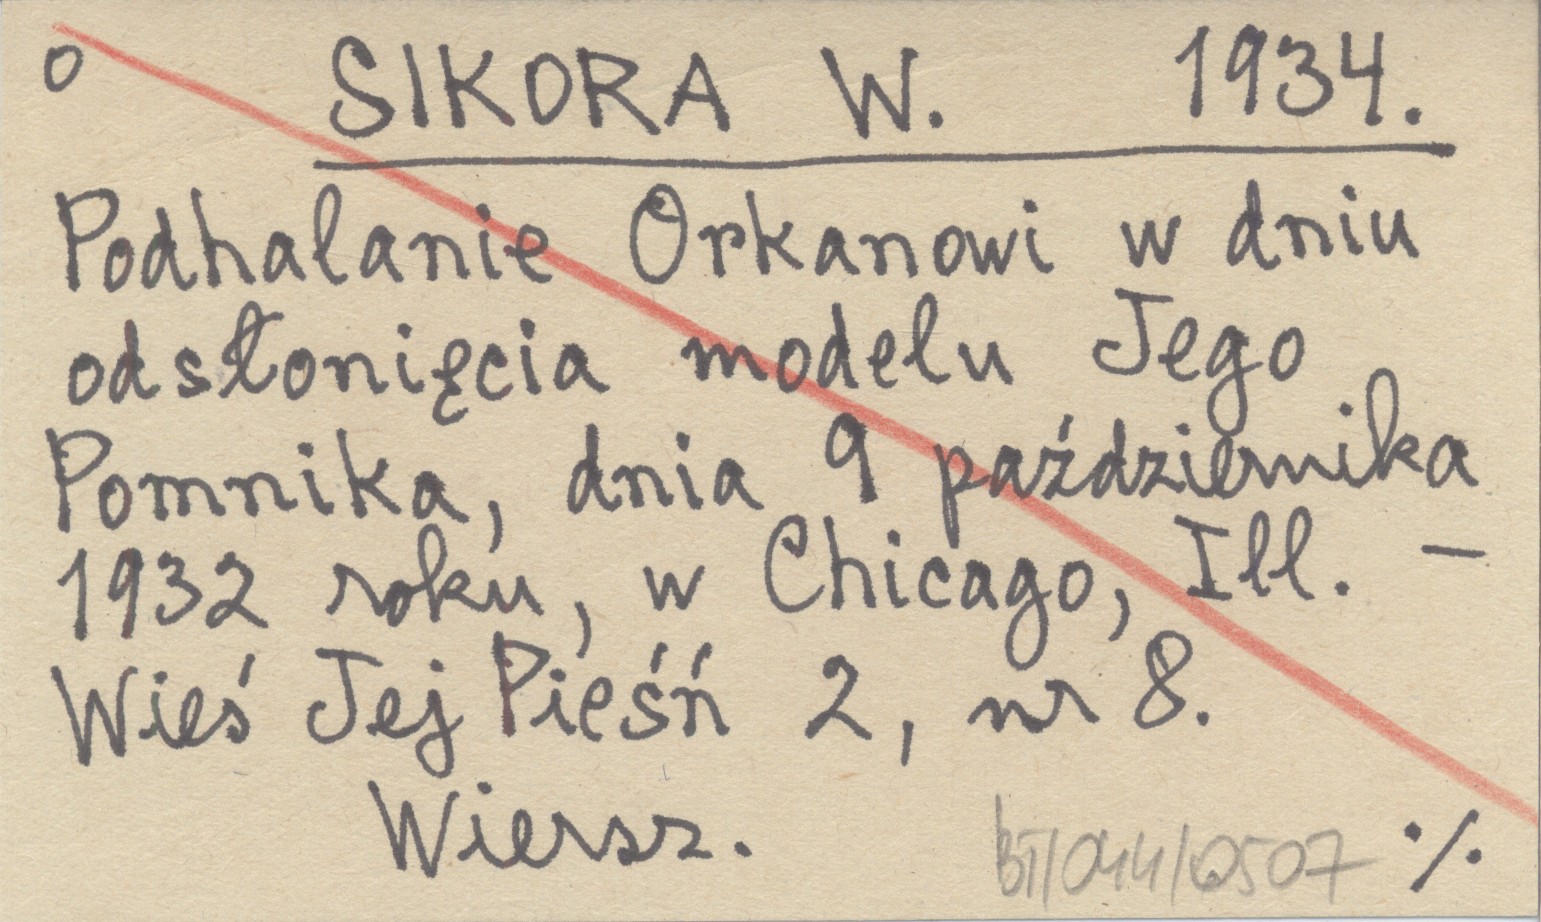 o SIKORA W. 1934.
Podhalanie Orkanowi w dniu
odsłonięcia modelu Jego
Pomnika, dnia 9 października
1932 roku, w Chicago, Ill. –
Wieś Jej Pieśń 2, nr 8.
Wiersz.
BT/044/0507 ·/.